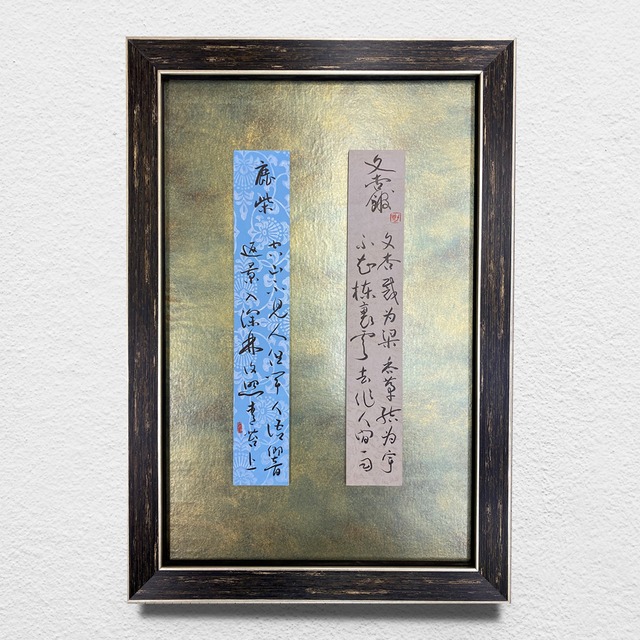 文杏館
文杏裁為梁香茅結為宇
不知棟裏雲去作人間雨
鹿柴
空山不見人但聞人語響
返景入深林復照青苔上